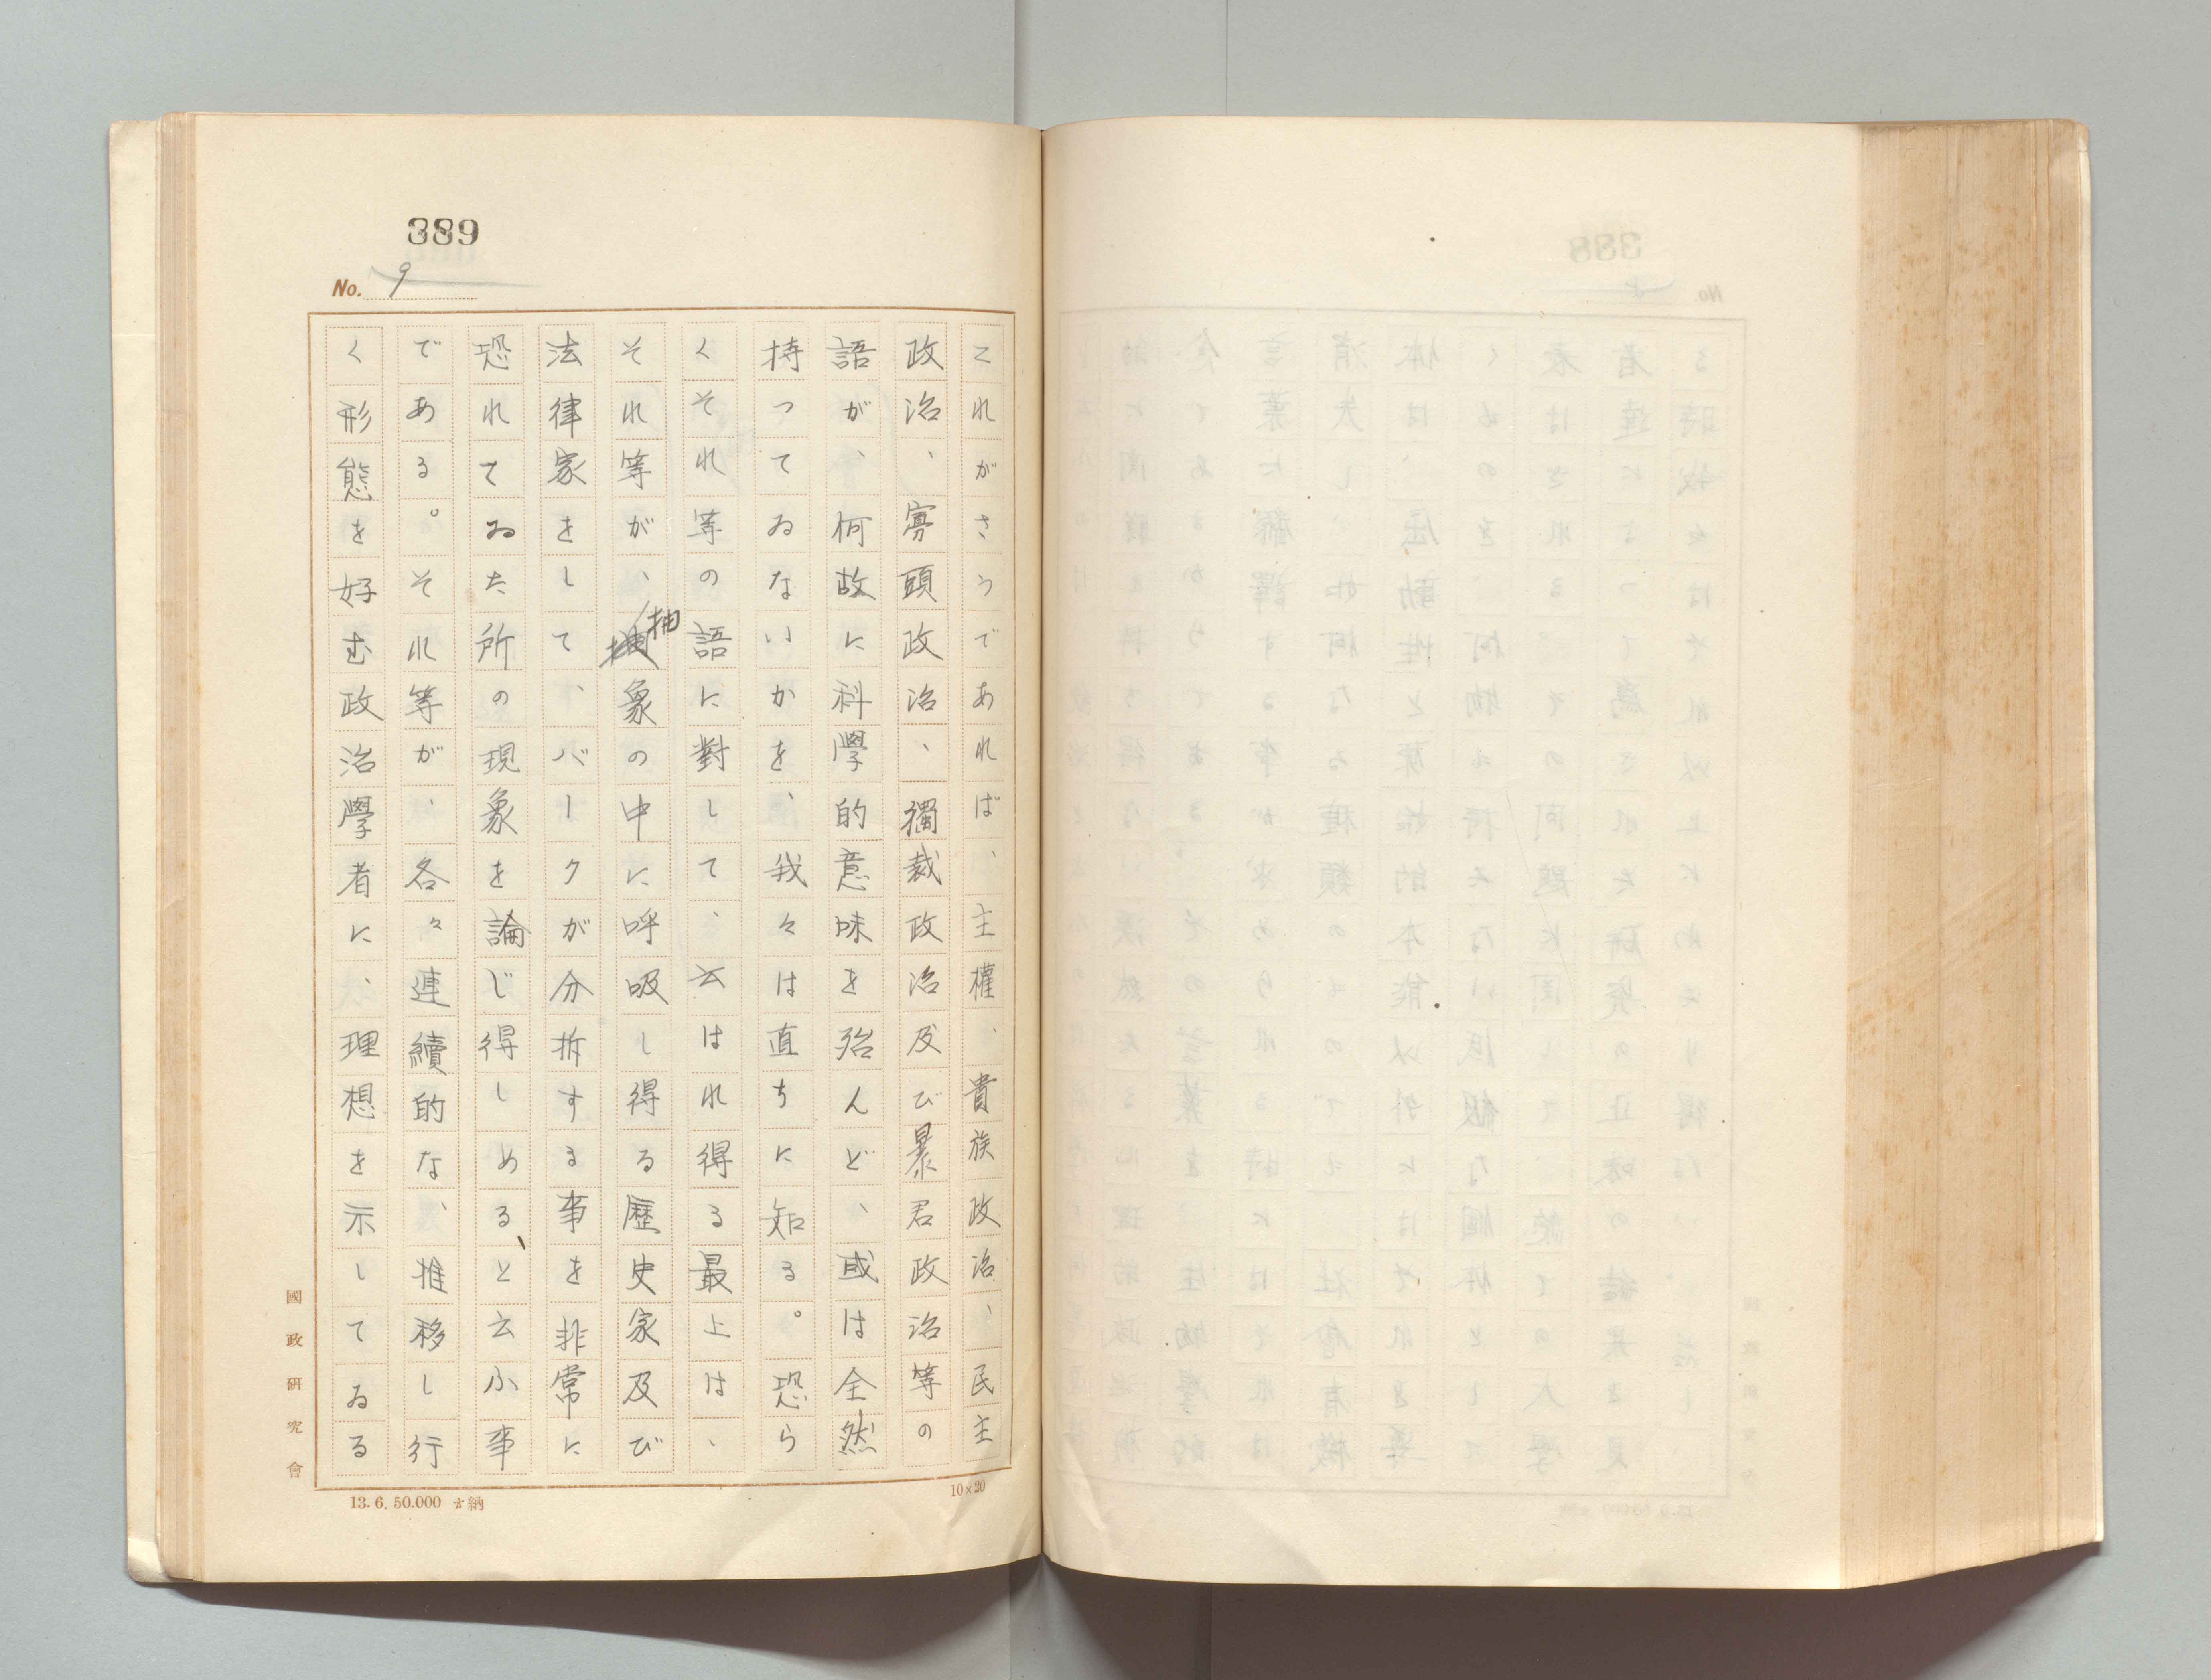 389
No. 9
これがさうであれば、主權、貴族政治、民主
政治、寡頭政治、獨裁政治及び暴君政治等の
語が、何故に科學的意味を殆んど、或は全然
持つてゐないかを、我々は直ちに知る。恐ら
くそれ等の語に對して、云はれ得る最上は、
それ等が、抽象の中に呼吸し得る歴史家及び
法律家をして、バークが分拆する事を非常に
恐れてゐた所の現象を論じ得しめると云ふ事
である。それ等が、各々連續的な、推移し行
く形態を好む政治學者に、理想を示してゐる
國政研究會
13.6.50.000 納
10×20